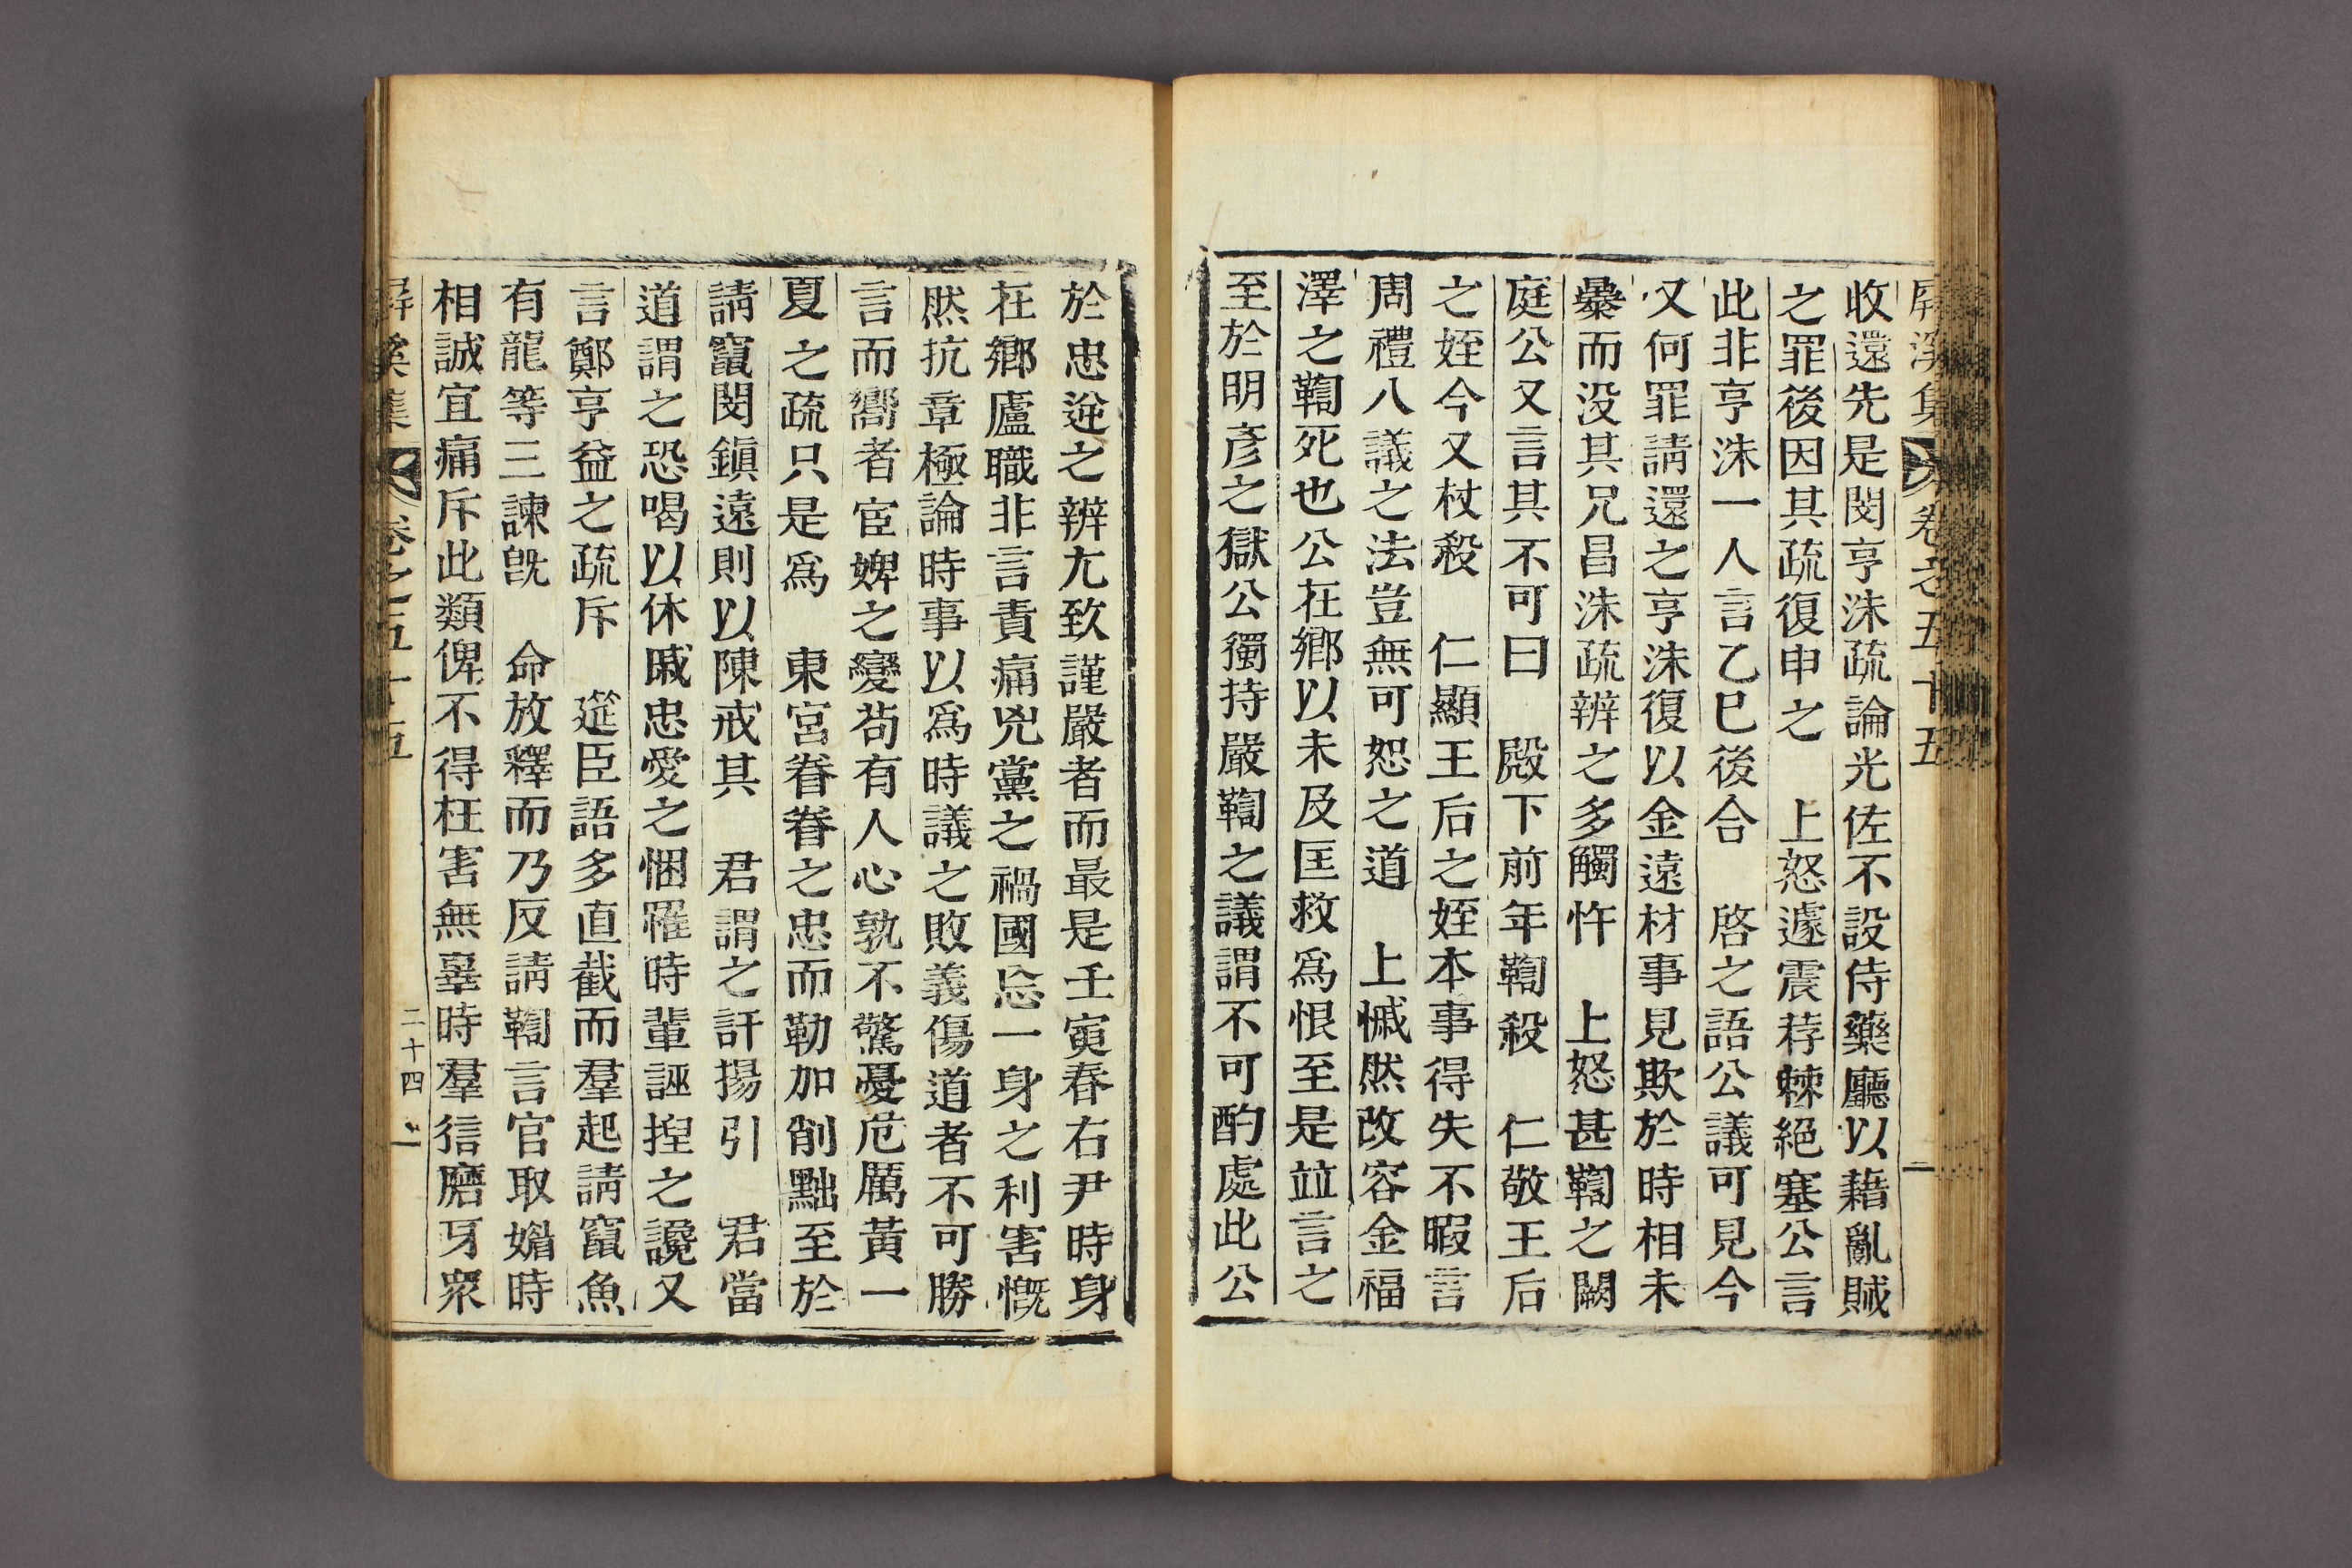 屛溪集 卷之五十五
收還先是閔亨洙疏論光佐不設侍藥廳以藉亂賊
之罪後因其疏復申之 上怒遽震荐棘絕塞公言
此非亨洙一人言乙巳後合 啓之語公議可見今
又何罪請還之亨洙復以金遠材事見欺於時相未
暴而没其兄昌洙疏辨之多觸忤 上怒甚鞫之闕
庭公又言其不可曰 殿下前年鞫殺 仁敬王后
之姪今又杖殺 仁顯王后之姪本事得失不暇言
周禮八議之法豈無可恕之道 上慽然改容金福
澤之鞫死也公在鄉以未及匡救爲恨至是並言之
至於明彥之獄公獨持嚴鞫之議謂不可酌處此公
於忠逆之辨尤致謹嚴者而最是壬寅春右尹時身
在鄉廬職非言責痛兇黨之禍國忘一身之利害慨
然抗章極論時事以爲時議之敗義傷道者不可勝
言而嚮者宦婢之變苟有人心孰不驚憂危厲黃一
夏之疏只是爲 東宮眷眷之忠而勒加削黜至於
請竄閔鎭遠則以陳戒其 君謂之訐揚引 君當
道謂之恐喝以休戚忠愛之悃罹時輩誣揑之讒又
言鄭亨益之疏斥 筵臣語多直截而羣起請竄魚
有龍等三諫旣 命放釋而乃反請鞫言官取媚時
相誠宜痛斥此類俾不得枉害無辜時羣猘磨牙衆
屛溪集 卷之五十五 二十四